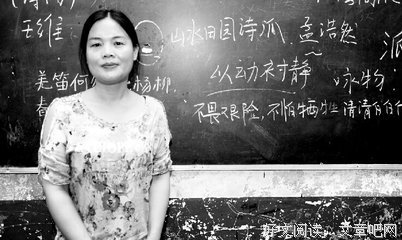 王维
山水田园诗派
孟浩然
派
羌笛何
杨柳
以动衬静
咏物
春
不畏艰险，不怕牺牲
清清白白行
好文阅读，文章吧网